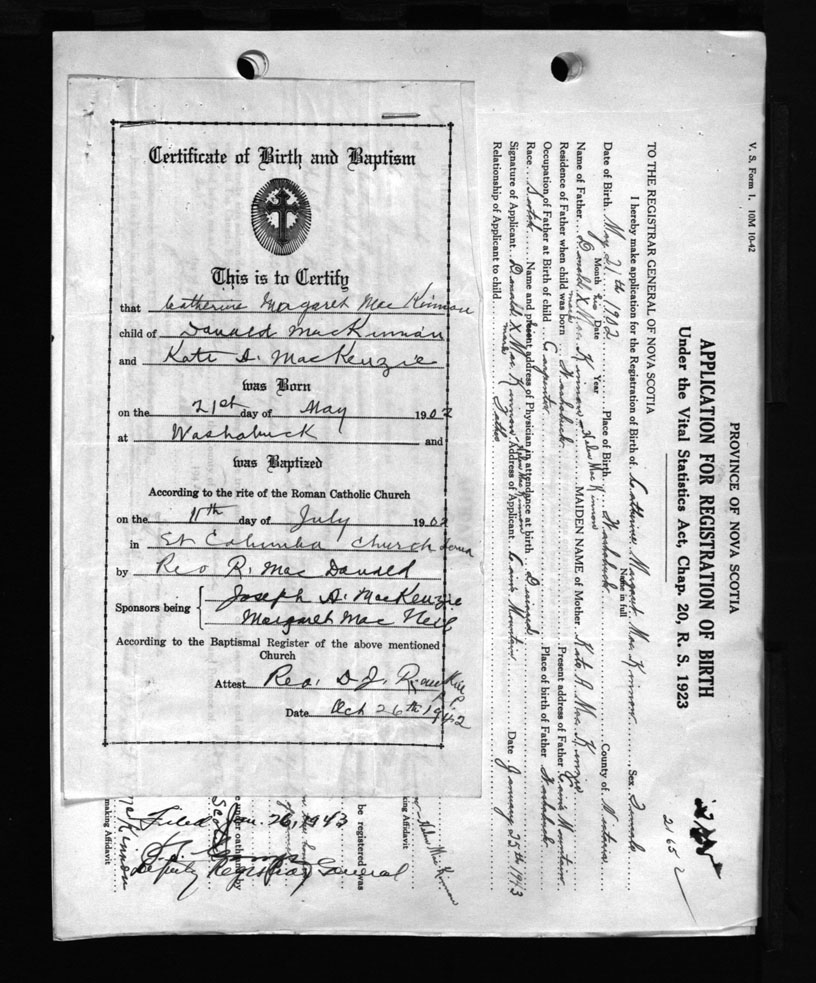 Certificate of Birth and Baptism
This is to Certify
that Catherine Margaret Mac Kinnon
child of Donald MacKinnon
and Kate A. MacKenzie
was Born
on the 21st day of May 1902
at Washabuck and
was Baptized
According to the rite of the Roman Catholic Church
on the day of July 1902
in St Columba Church Iona
by Rev R. Mac Donald
Sponsors being Joseph A. MacKenzie
Margaret Mac Neil
According to the Baptismal Register of the above mentioned
Church
Attest Rev. D. J. P.P.
Date Oct 26th 1942
V. S. Form 1. 10M 10-42
PROVINCE OF NOVA SCOTIA
APPLICATION FOR REGISTRATION OF BIRTH
Under the Vital Statistics Act, Chap. 20, R. S. 1923
2165 2
TO THE REGISTRAR GENERAL OF NOVA SCOTIA
I hereby make application for the Registration of Birth of Catherine Margaret Mac Kinnon Sex Female
Name in full
Date of Birth May 21th 1902 Place of Birth Washabuck County of Victoria
Month Date Year
Name of Father Donald X Mac Kinnon MAIDEN NAME of Mother Kate A Mac Kenzie
his mark Helen Mac Kinnon
Residence of Father when child was born Washabuck Present address of Father Cains Mountain
Occupation of Father at Birth of child Carpenter Place of birth of Father Washabuck
Race Scotch Name and present address of Physician in attendance at birth
Signature of Applicant Donald X Mac Kinnon Address of Applicant Cains Mountain Date January 25th 1943
mark Helen Mac Kinnon
Relationship of Applicant to child Father
Helen Mac Kinnon
king Affidavit
be registered was
under oath by
making Affidavit
Filed Jan. 26, 1943
Deputy Registrar General